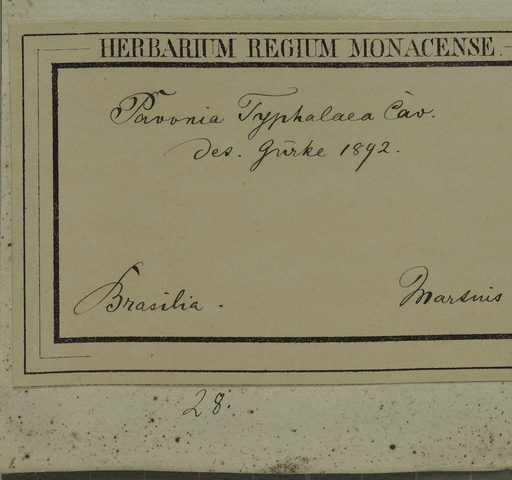 HERBARIUM REGIUM MONACENSE.
Pavonia Typhalaea Cav.
Des. Gürke 1892.
Brasilia.
Martius
28.